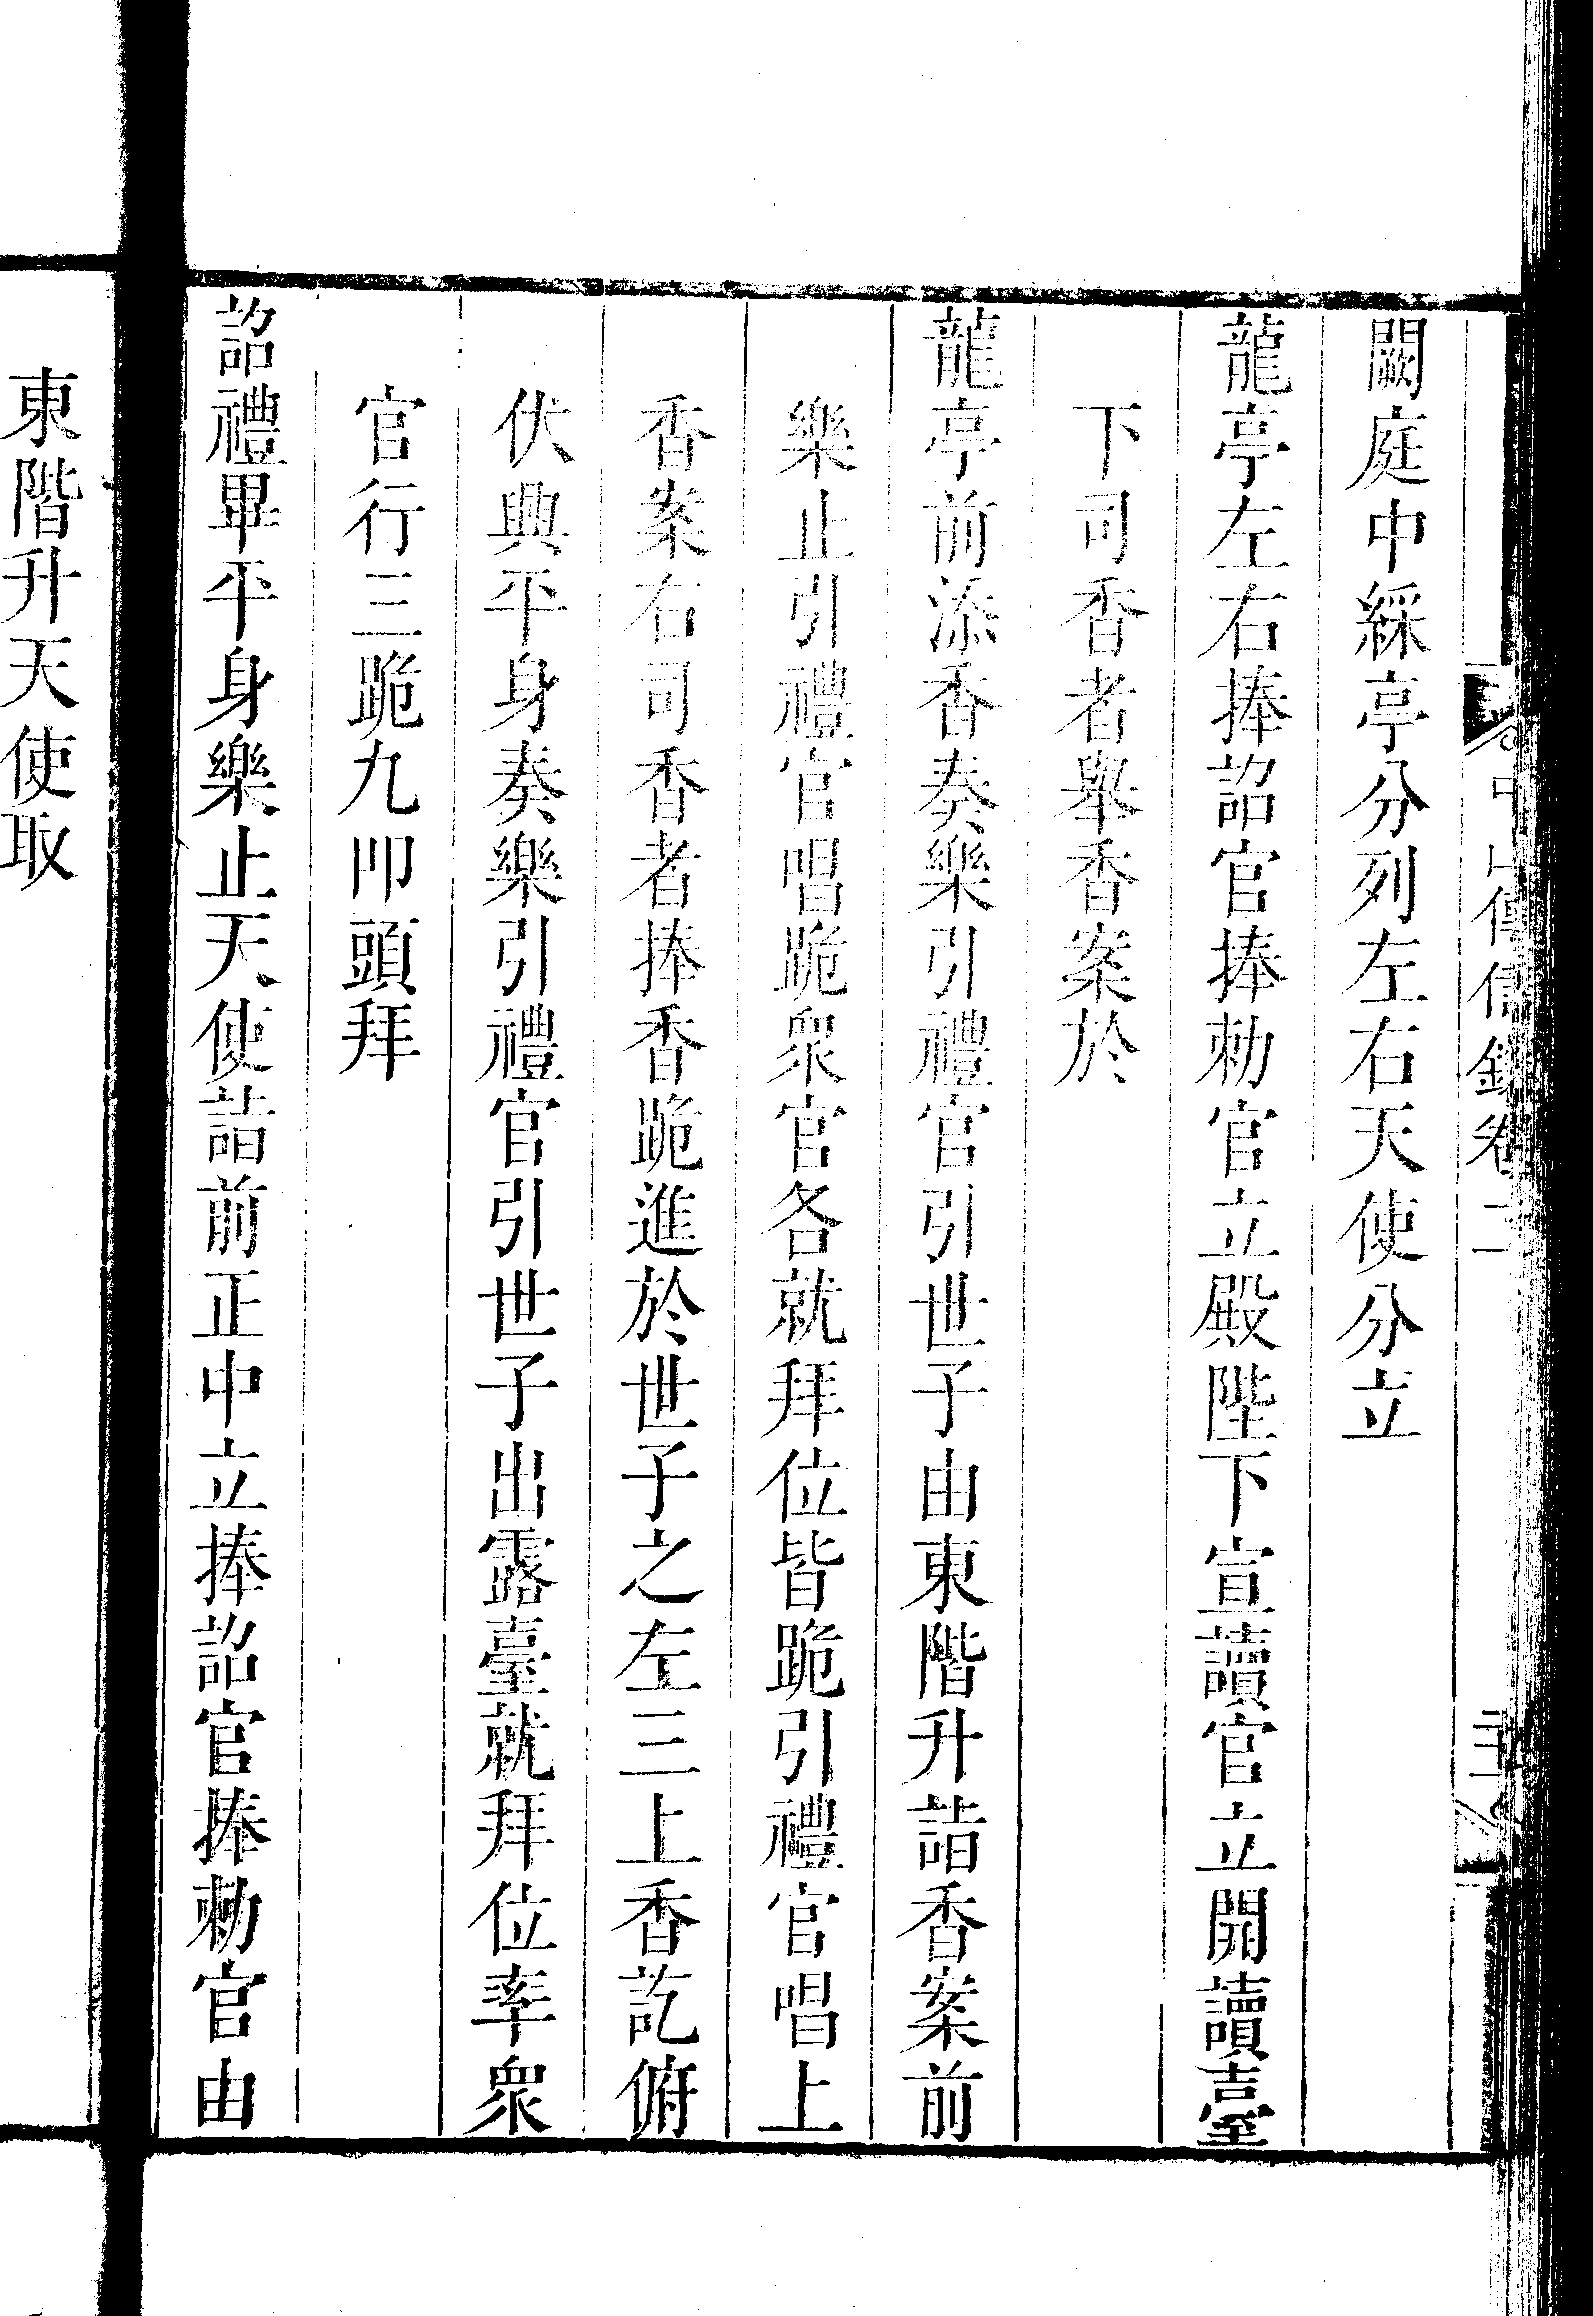 中山傳信錄卷二
闕庭中綵亭分列左右天使分立
龍亭左右捧詔官捧勅官立殿陛下宣讀官立開讀臺
下司香者舉香案於
龍亭前添香奏樂引禮官引世子由東階升詣香案前
樂止引禮官唱跪衆官各就拜位皆跪引禮官唱上
香案右司香者捧香跪進於世子之左三上香訖俯
伏興平身奏樂引禮官引世子出露臺就拜位率衆
官行三跪九叩頭拜
詔禮畢平身樂止天使詣前正中立捧詔官捧勅官由
東階升天使取